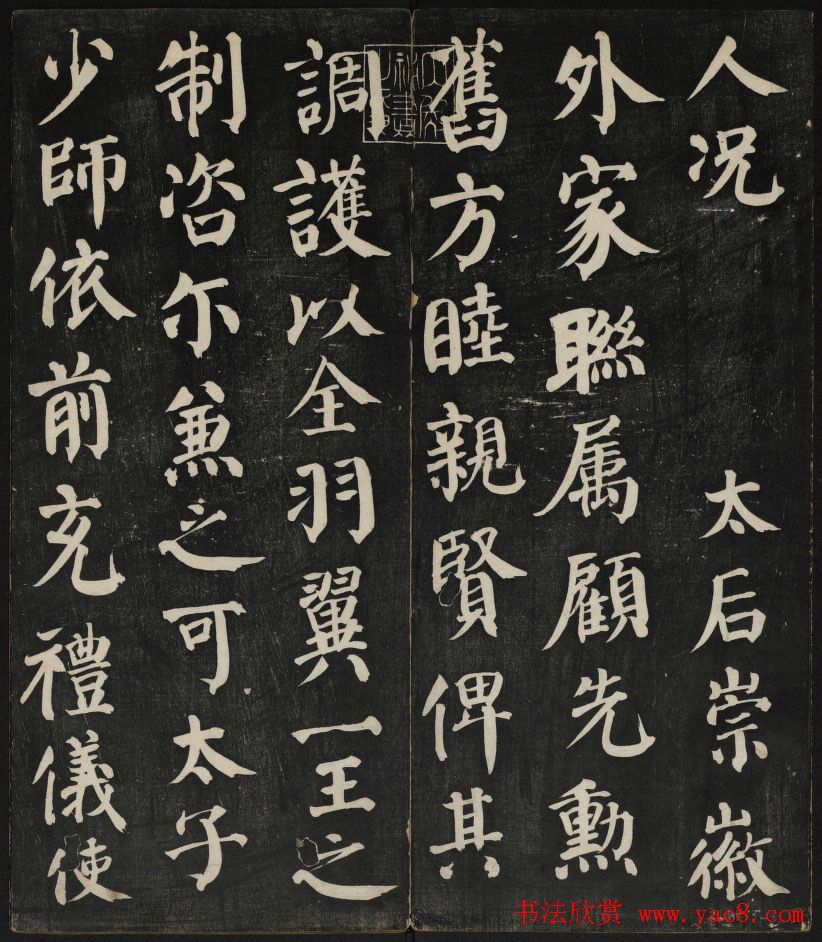 人况 太后崇徽
外家聯属顧先勲
舊方睦親賢俾其
調護以全羽翼一王之
制咨尔兼之可太子
少師依前充禮儀使
书法欣赏 www.yac8.com